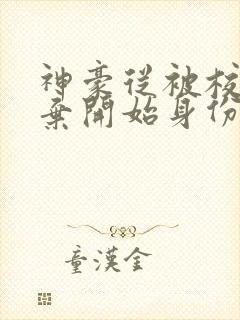 神豪從被校
棄開始身份
童漢金